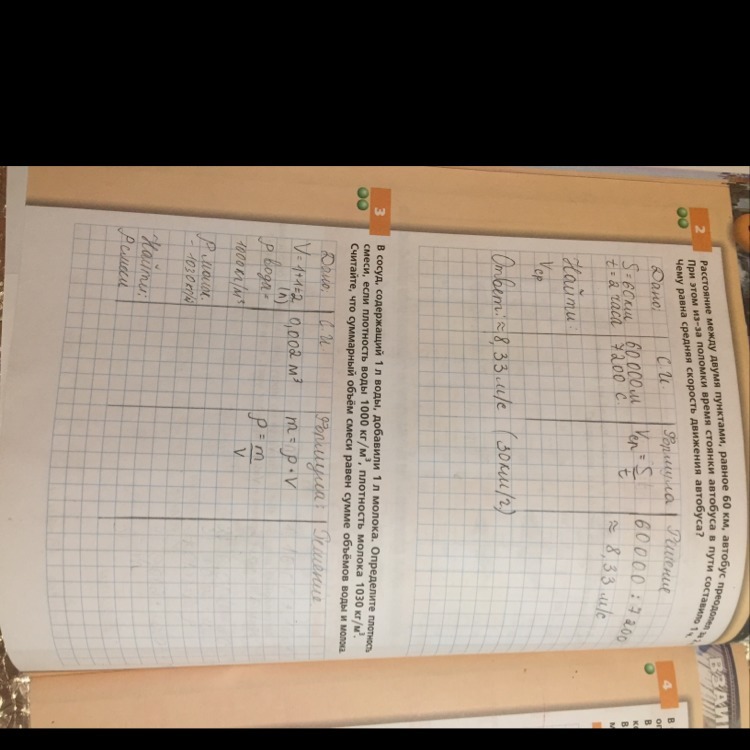 2
Расстояние между двумя пунктами, равное 60 км, автобус преодолел за
При этом из-за поломки время стоянки автобуса в пути составило 1 ч
Чему равна средняя скорость движения автобуса?
Дано: С.И. Формула Решение
S=60км 60 000м Vср = S/t 60000 : 7200
t = 2 часа 7200 с. ≈ 8,33 м/с
Найти:
Vср
Ответ: ≈ 8,33 м/с (30км/г)
3
В сосуд, содержащий 1 л воды, добавили 1 л молока. Определите плотность
смеси, если плотность воды 1000 кг/м³, плотность молока 1030 кг/м³.
Считайте, что суммарный объём смеси равен сумме объёмов воды и молока
Дано: С.И Формула: Решение
V = 1+1=2 (л) 0,002 м³ m = ρ · V
ρ вода = ρ = m/V
1000 кг/м³
Найти:
ρ смеси
4
В